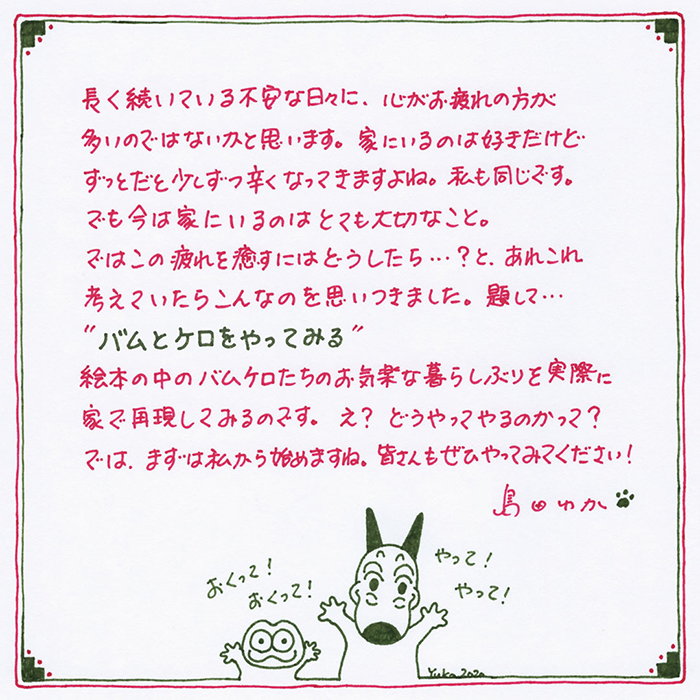 長く続いている不安な日々に、心がお疲れの方が
多いのではないかと思います。家にいるのは好きだけど
ずっとだと少しずつ辛くなってきますよね。私も同じです。
でも今は家にいるのはとても大切なこと。
ではこの疲れを癒すにはどうしたら…?と、あれこれ
考えていたらこんなのを思いつきました。題して…
"バムとケロをやってみる"
絵本の中のバムケロたちのお気楽な暮らしぶりを実際に
家で再現してみるのです。え?どうやってやるのかって?
では、まずは私から始めますね。皆さんもぜひやってみてください!
島田ゆか
おくって!
おくって!
やって!
やって!
Yuka 2020